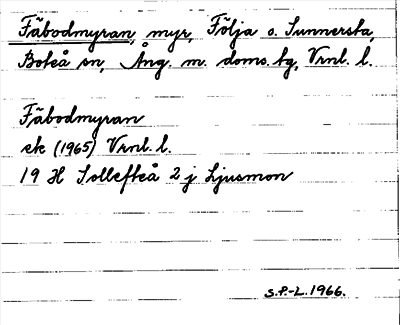 Fäbodmyran, myr, Följa o. Sunnersta,
Boteå sn, Ång. m. doms. tg, Vrnl. l.
Fäbodmyran
ek (1965) Vrnl. l.
19 H Sollefteå 2 j Ljusmon
S.P.-L. 1966.